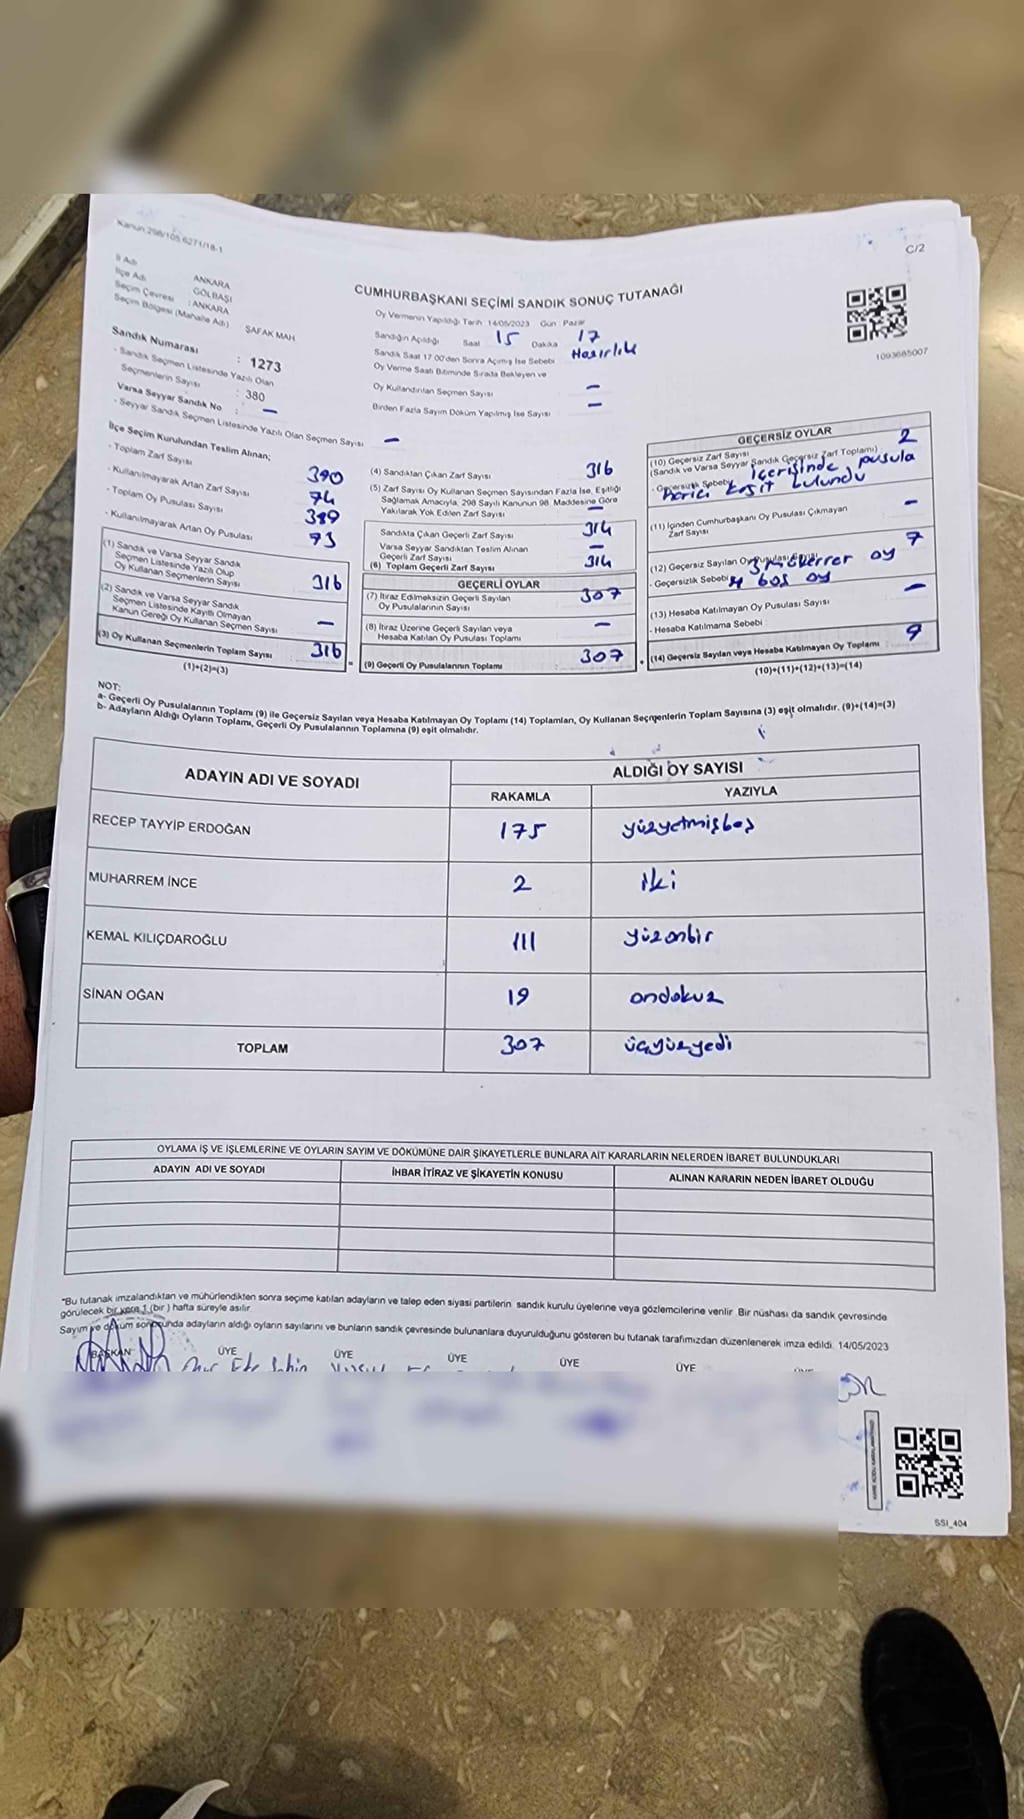 Kanun 298/105 6271/18-1
C/2
İl Adı ANKARA
İlçe Adı GÖLBAŞI
Seçim Çevresi : ANKARA
Seçim Bölgesi (Mahalle Adı) ŞAFAK MAH
CUMHURBAŞKANI SEÇİMİ SANDIK SONUÇ TUTANAĞI
Oy Vermenin Yapıldığı Tarih 14/05/2023 Gün : Pazar
Sandığın Açıldığı Saat 15 Dakika 17
Sandık Saat 17 00'den Sonra Açımış İse Sebebi Hazırlık
Oy Verme Saati Bitiminde Sırada Bekleyen ve
Oy Kullandırılan Seçmen Sayısı –
Birden Fazla Sayım Döküm Yapılmış İse Sayısı –
1093685007
Sandık Numarası : 1273
- Sandık Seçmen Listesinde Yazılı Olan
Seçmenlerin Sayısı : 380
Varsa Seyyar Sandık No : –
- Seyyar Sandık Seçmen Listesinde Yazılı Olan Seçmen Sayısı –
İlçe Seçim Kurulundan Teslim Alınan;
- Toplam Zarf Sayısı 390
- Kullanılmayarak Artan Zarf Sayısı 74
- Toplam Oy Pusulası Sayısı 389
- Kullanılmayarak Artan Oy Pusulası 73
(1) Sandık ve Varsa Seyyar Sandık
Seçmen Listesinde Yazılı Olup
Oy Kullanan Seçmenlerin Sayısı 316
(2) Sandık ve Varsa Seyyar Sandık
Seçmen Listesinde Kayıtlı Olmayan
Kanun Gereği Oy Kullanan Seçmen Sayısı –
(3) Oy Kullanan Seçmenlerin Toplam Sayısı 316
(1)+(2)=(3)
(4) Sandıktan Çıkan Zarf Sayısı 316
(5) Zarf Sayısı Oy Kullanan Seçmen Sayısından Fazla İse, Eşitliği
Sağlamak Amacıyla, 298 Sayılı Kanunun 98. Maddesine Göre
Yakılarak Yok Edilen Zarf Sayısı –
Sandıkta Çıkan Geçerli Zarf Sayısı 314
Varsa Seyyar Sandıktan Teslim Alınan
Geçerli Zarf Sayısı –
(6) Toplam Geçerli Zarf Sayısı 314
GEÇERLİ OYLAR
(7) İtiraz Edilmeksizin Geçerli Sayılan
Oy Pusulalarının Sayısı 307
(8) İtiraz Üzerine Geçerli Sayılan veya
Hesaba Katılan Oy Pusulası Toplamı –
= (9) Geçerli Oy Pusulalarının Toplamı 307
GEÇERSİZ OYLAR
(10) Geçersiz Zarf Sayısı 2
(Sandık ve Varsa Seyyar Sandık Geçersiz Zarf Toplamı)
- Geçersizlik Sebebi içerisinde pusula
harici kağıt bulundu
(11) İçinden Cumhurbaşkanı Oy Pusulası Çıkmayan
Zarf Sayısı –
(12) Geçersiz Sayılan Oy Pusulası Sayısı 7
3 mükerrer oy
- Geçersizlik Sebebi 4 boş oy
(13) Hesaba Katılmayan Oy Pusulası Sayısı –
- Hesaba Katılmama Sebebi
+ (14) Geçersiz Sayılan veya Hesaba Katılmayan Oy Toplamı 9
(10)+(11)+(12)+(13)=(14)
NOT:
a- Geçerli Oy Pusulalarının Toplamı (9) ile Geçersiz Sayılan veya Hesaba Katılmayan Oy Toplamı (14) Toplamları, Oy Kullanan Seçmenlerin Toplam Sayısına (3) eşit olmalıdır. (9)+(14)=(3)
b- Adayların Aldığı Oyların Toplamı, Geçerli Oy Pusulalarının Toplamına (9) eşit olmalıdır.
ADAYIN ADI VE SOYADI ALDIĞI OY SAYISI
RAKAMLA YAZIYLA
RECEP TAYYİP ERDOĞAN 175 yüzyetmişbeş
MUHARREM İNCE 2 iki
KEMAL KILIÇDAROĞLU 111 yüzonbir
SİNAN OĞAN 19 ondokuz
TOPLAM 307 üçyüzyedi
OYLAMA İŞ VE İŞLEMLERİNE VE OYLARIN SAYIM VE DÖKÜMÜNE DAİR ŞİKAYETLERLE BUNLARA AİT KARARLARIN NELERDEN İBARET BULUNDUKLARI
ADAYIN ADI VE SOYADI İHBAR İTİRAZ VE ŞİKAYETİN KONUSU ALINAN KARARIN NEDEN İBARET OLDUĞU
*Bu tutanak imzalandıktan ve mühürlendikten sonra seçime katılan adayların ve talep eden siyasi partilerin sandık kurulu üyelerine veya gözlemcilerine verilir. Bir nüshası da sandık çevresinde
görülecek bir yere 1 (bir ) hafta süreyle asılır.
Sayım ve döküm sonucunda adayların aldığı oyların sayılarını ve bunların sandık çevresinde bulunanlara duyurulduğunu gösteren bu tutanak tarafımızdan düzenlenerek imza edildi. 14/05/2023
BAŞKAN ÜYE ÜYE ÜYE ÜYE ÜYE
SSI_404